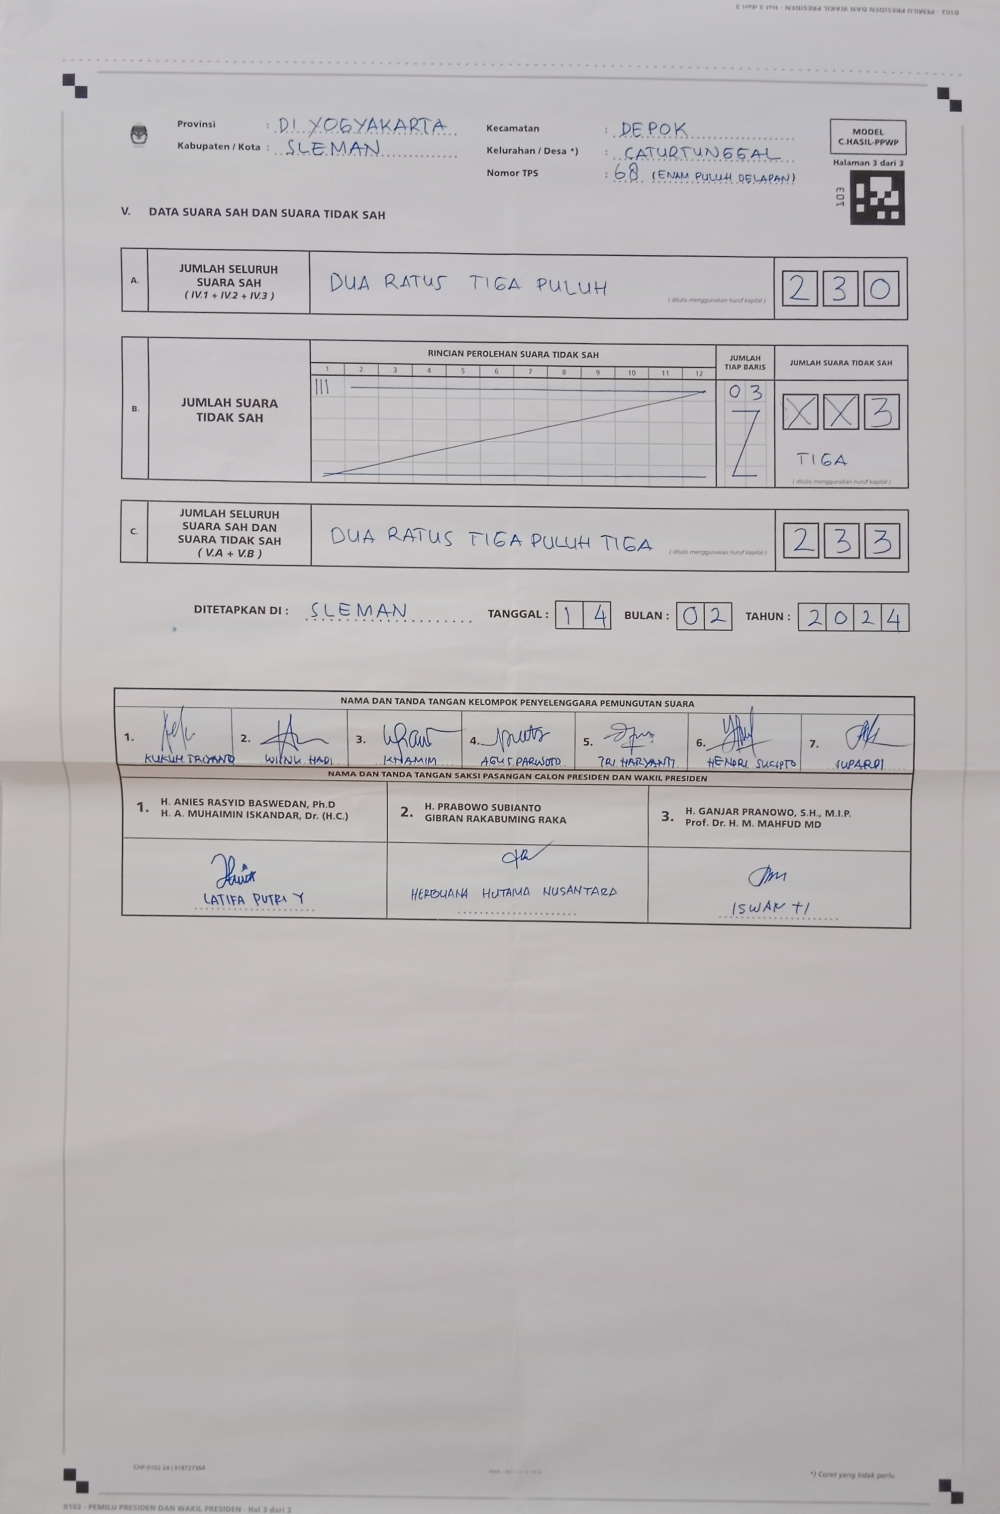 Provinsi : DI YOGYAKARTA
Kabupaten / Kota : SLEMAN
Kecamatan : DEPOK
Kelurahan / Desa *) : CATURTUNGGAL
Nomor TPS : 68 (ENAM PULUH DELAPAN)
MODEL
C.HASIL-PPWP
Halaman 3 dari 3
103
V. DATA SUARA SAH DAN SUARA TIDAK SAH
A. JUMLAH SELURUH
SUARA SAH
( IV.1 + IV.2 + IV.3 )
DUA RATUS TIGA PULUH
( ditulis menggunakan huruf kapital )
2 3 0
B. JUMLAH SUARA
TIDAK SAH
RINCIAN PEROLEHAN SUARA TIDAK SAH
1 2 3 4 5 6 7 8 9 10 11 12
III
JUMLAH
TIAP BARIS
0 3
JUMLAH SUARA TIDAK SAH
X X 3
TIGA
( ditulis menggunakan huruf kapital )
C. JUMLAH SELURUH
SUARA SAH DAN
SUARA TIDAK SAH
( V.A + V.B )
DUA RATUS TIGA PULUH TIGA
( ditulis menggunakan huruf kapital )
2 3 3
DITETAPKAN DI : SLEMAN TANGGAL : 1 4 BULAN : 0 2 TAHUN : 2 0 2 4
NAMA DAN TANDA TANGAN KELOMPOK PENYELENGGARA PEMUNGUTAN SUARA
1. 2. 3. 4. 5. 6. 7.
KUKUH TRIYANO WISNU HADI KHAMIM AGUS PARWOTO TRI HARYANTI HENDRI SUCIPTO SUPARDI
NAMA DAN TANDA TANGAN SAKSI PASANGAN CALON PRESIDEN DAN WAKIL PRESIDEN
1. H. ANIES RASYID BASWEDAN, Ph.D
H. A. MUHAIMIN ISKANDAR, Dr. (H.C.)
2. H. PRABOWO SUBIANTO
GIBRAN RAKABUMING RAKA
3. H. GANJAR PRANOWO, S.H., M.I.P.
Prof. Dr. H. M. MAHFUD MD
LATIFA PUTRI Y
HERBUANA HUTAMA NUSANTARA
ISWANTI
*) Coret yang tidak perlu
0102 - PEMILU PRESIDEN DAN WAKIL PRESIDEN - Hal 3 dari 3